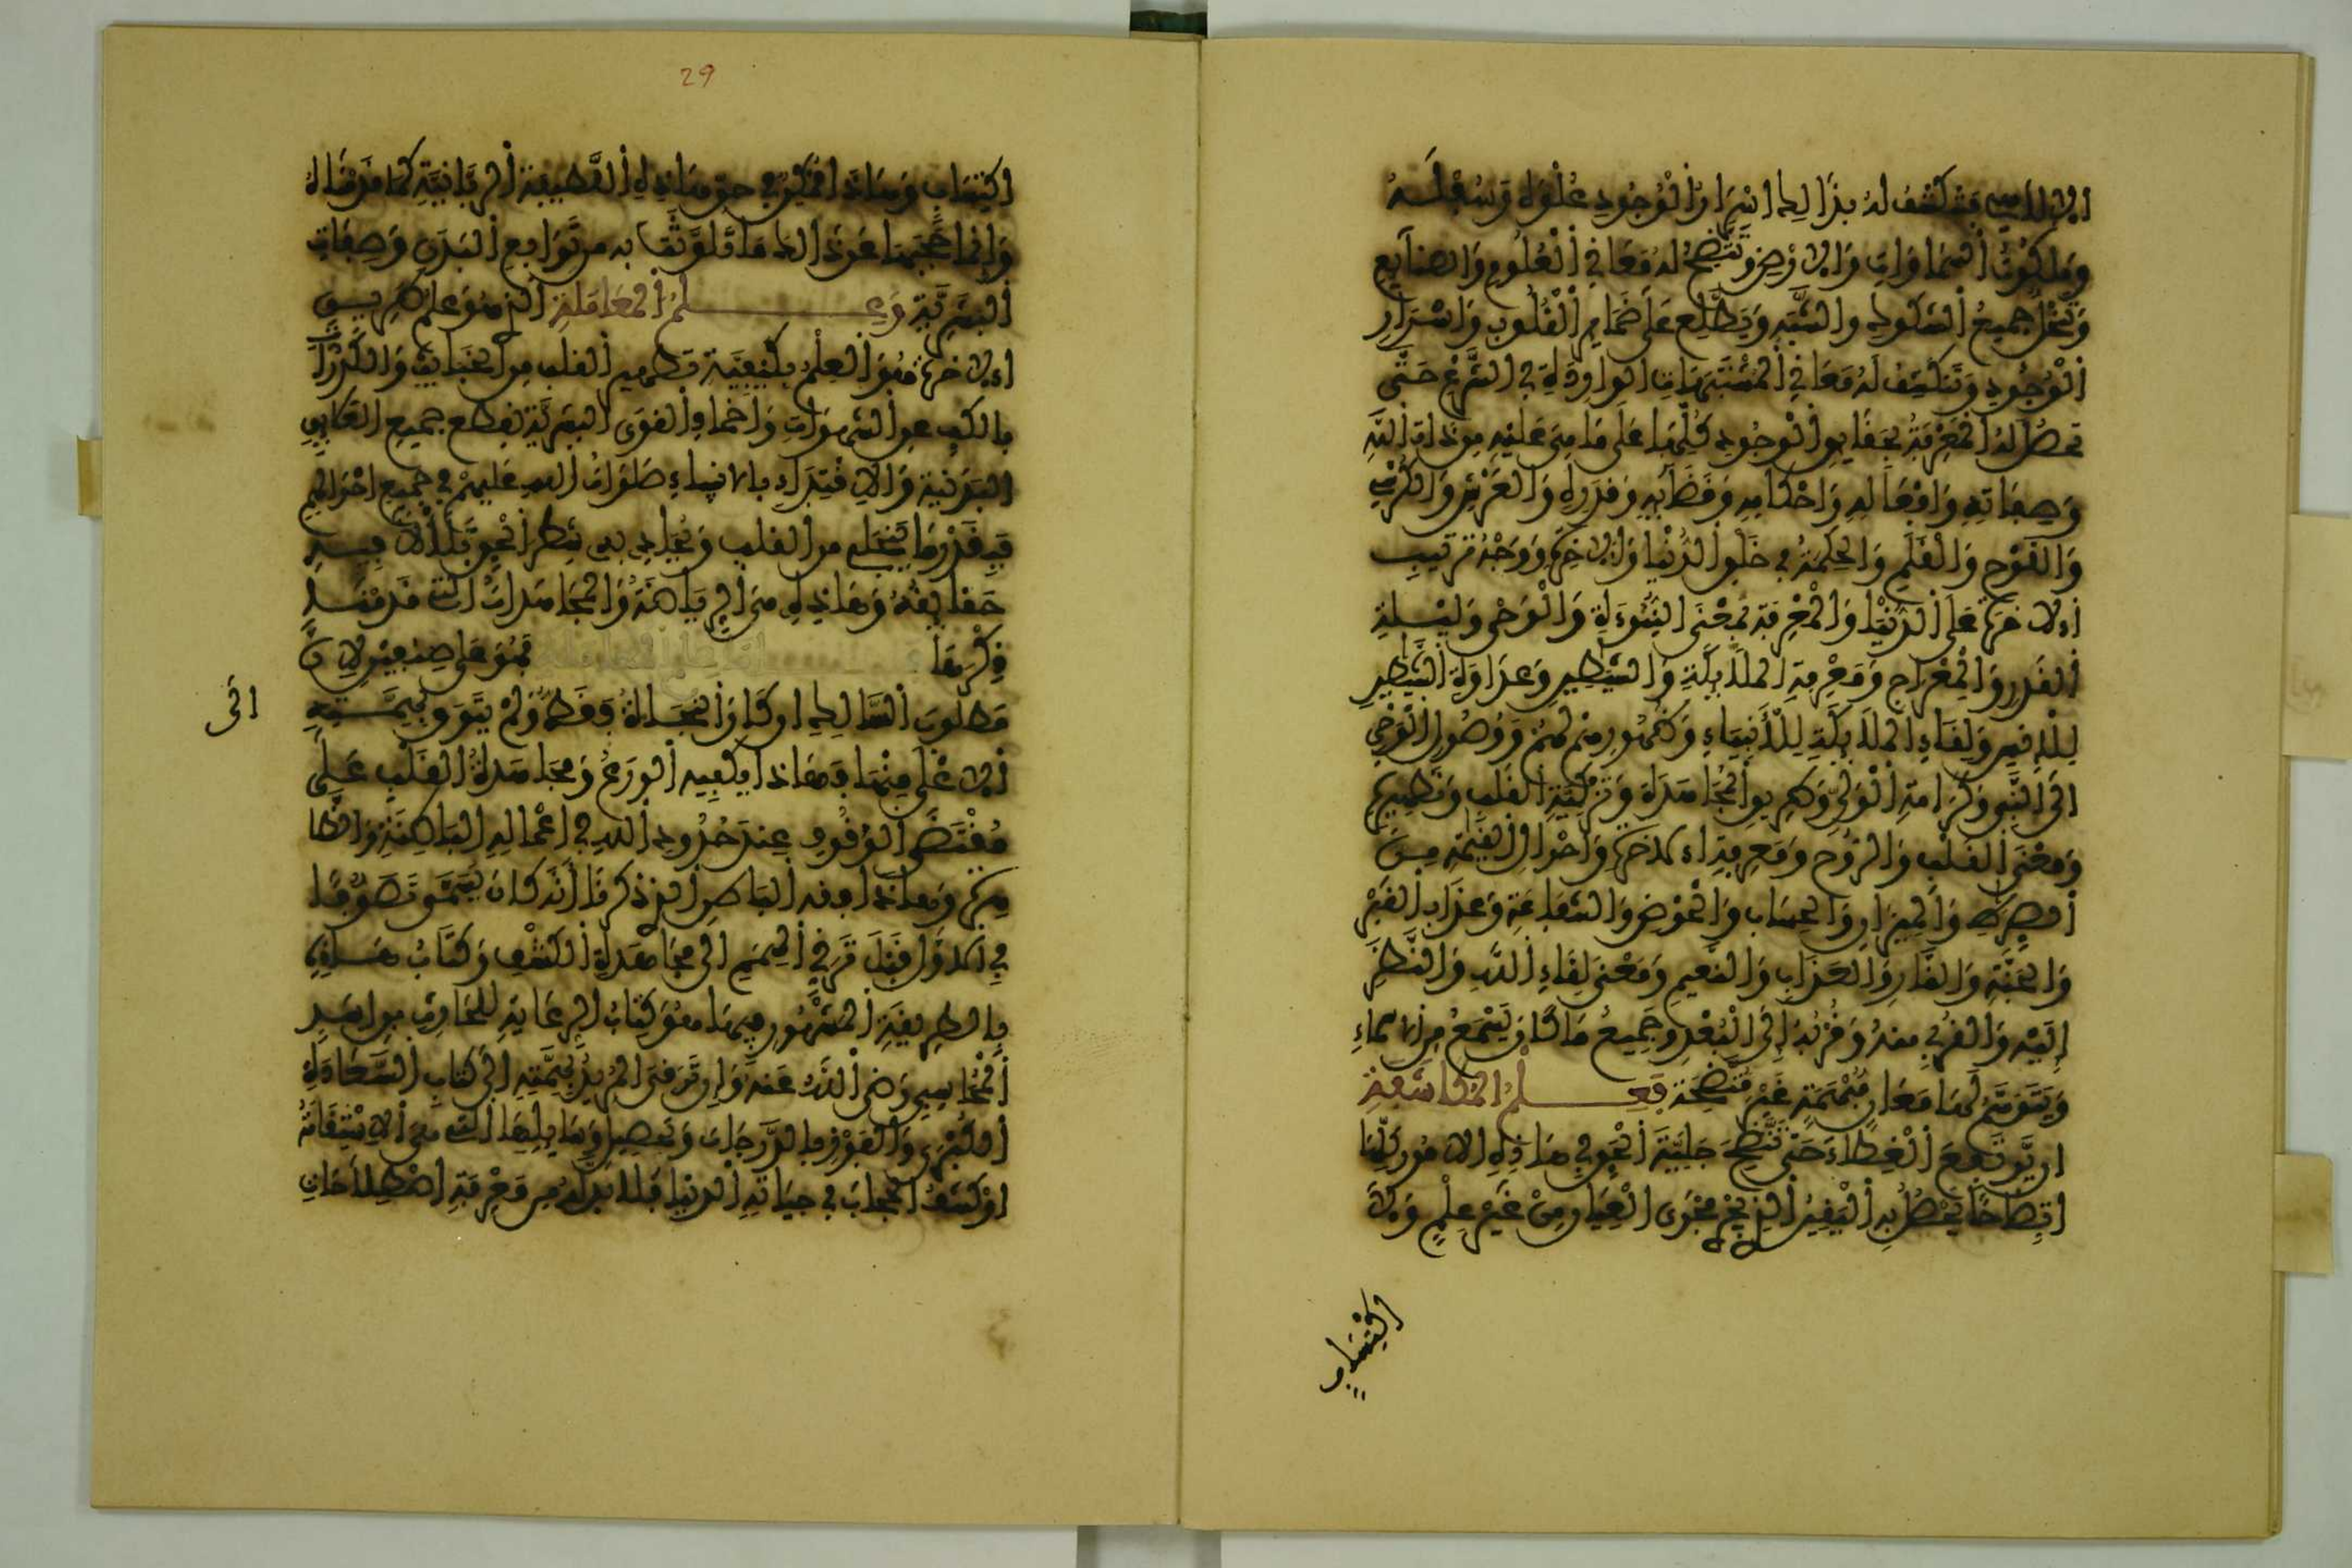 الالاهي فتكشف له بذالك اسْرَارُ الْوُجُودِ عُلْوَاهُ وَسُفْلَـهُ
وَمَلكُوتُ السَّمَاوَاتِ وَالارْضِ وَتَتَّضِحُ لهُ مَعَانِي الْعُلُومِ وَالصنَايِعِ
وَتَنْحَلُّ جَمِيعُ الشكوكِ والشُّبَهِ وَيَطَّلِع عَلَى ضَمَايِرِ الْقُلُوبِ وَاسْرَارِ
الْوُجُودِ وَتَنكَشِفُ لهُ مَعَانِي الْمُشْتَبِهَاتِ الوارِدَةِ فِي الشَّرْعِ حَتَّى
تحصُل لهُ الْمَعْرِفَةُ بحَقَايِقِ الْوُجُودِ كُلِّهَا عَلَى مَا هِيَ عَلَيْهِ مِن ذَاتِ اللَّهِ
وَصِفَاتِهِ وَافْعَالِهِ وَاحْكَامِهِ وَقَضَايِهِ وَقَدَرِهِ وَالعَرْشِ وَالكُرْسِي
وَاللَّوْحِ وَالْقَلَمِ وَالْحِكْمَةُ فِي خَلْقِ الدُّنْيَا وَالاخِرَةِ وَوَجْهُ تَرْتِيبِ
الاخرَةِ عَلَى الدُّنْيَا وَالْمَعْرِفَة بِمَعْنَى النُّبُوءَةِ وَالْوَحْي وَلَيْـلةِ
الْقَدْرِ وَالْمِعْرَاجِ وَمَعْرِفَةِ الْملَايِكَةِ وَالشيَّطِينِ وَعَدَاوَةِ الشَّيَطِينِ
لِلْإنسِ وَلِقَاءِ الْملَايِكَةِ لِلْأَنبِيَاءِ وَظُهُورِهِمْ لَهُمْ وَوُصُولِ الْوَحْيِ
الى النَّبِي وَكَرَامَةِ الْوَلِيّ وَطَرِيقِ الْمُجَاهَدَةِ وَتَزْكِيَةِ القَلبِ وَتَطْهِيرِهِ
وَمَعْنَى القَلْبِ وَالرُّوحِ وَمَعْرِفَةِ الاخرَةِ وَاحْوَالِ القِيَمَةِ مِنَ
الصِّرَطِ وَالْمِيزَانِ وَالْحِسَابِ وَالْحَوْضِ وَالشَّفَاعَةِ وَعَذَابِ الْقَبْرِ
وَالْجَنَّةِ وَالنَّارِ وَالعَذَابِ وَالنَّعِيمِ وَمَعْنَى لِقَاءِ اللَّهِ وَالنَّظَرِ
إِلَيْهِ وَالقُرْبِ مِنْهُ وَقُرْبُهُ الَى الْبُعْدِ وَجَمِيعُ مَا كَانَ يَسْمَعُ مِنَ الاسْمَاءِ
وَيَتَوَهَّمُ لَهَا مَعَانٍ مُبْهَمَةٍ غَيْرَ مُتَّضِحَة فَعِـلْمُ الْمُكَاشَفَةِ
ان يَرْتَفِعَ الْغِطَاءُ حَتَّى تَتَّضِحَ جَلِيَّةُ الْحَقِ فِي هَاذِهِ الامُورِ كلّهَا
اتِضَاحًا يَحْصُلُ بِهِ الْيَقِينُ الذِي يَجْرِي مَجْرَى الْعِيَانِ مِنْ غَيْرِ عِلْمٍ وَلَا
اكْتِسَابٍ
29
اكتِسَابٍ وَهَاذَا مُمْكِنٌ فِي حَقِّ هَاذِهِ اللَّطِيفَةِ الرَّبَّانِيَّةِ كَمَا قَدَّمْنَاهُ
وَإِنَّمَا حَجَبَهَا عَن ذَالك مَا تَلَوَّثَتْ بِهِ مِن تَوَابِعِ البَدَنِ وَصِفَاتِ
الْبَشَرِيَّةِ وَعِـلْمُ الْمُعَامَلَةِ الذِي هُوَ عِلمُ طَرِيـقِ
الاخرَةِ هُوَ الْعِلْمُ بِكَيْفِيَّةِ تَطْهِيرِ القلب مِنَ الْخَبَايِثِ وَالكَدُرَاتِ
بِالكَفِّ عن الشهَوَاتِ وَاخمَادِ القوَى البَشَرِيَّةِ بِقَطْعِ جمِيعِ العَلَايِقِ
البَدَنِيَّةِ وَالاقْتِدَاءِ بِالانبيَاءِ صَلَوَاتُ اللهِ عَلَيْهِمْ فِي جمِيعِ احْوَالهِم
فَبِقَدْرِ مَا يَنْجَلِي مِن القَلبِ وَيُحَاذِي بِهِ شَطْرَ الْحَقِ تَتَلألأ فِيـهِ
حَقَايِقُهُ وَهَاذِهِ هِيَ الرِّيَاضَةُ وَالْمُجَاهَدَاتُ التِي قَدَّمْنَا
ذِكْرَهَا فَهُوَ عَلَى صِنْفَيْنِ لِانَّ
مَطلُوبَ السَّالِكِ ان كَانَ النَّجَاةُ فَقَط وَلَمْ يَتَرَقَّ بِهِمَّـتِهِ الَى
الاعْلَى مِنْهَا فَهَاذَا يَكْفِيهِ الْوَرَعُ وَمُجَاهَدَةُ القَلْبِ عَلَى
مُقْتَضَى الوُقُوفِ عِندَ حُدُودِ اللهِ فِي اعْمَالِهِ البَاطِنَةِ وَالظَّا
هِرَةِ وَهَاذَا هو فقه البَاطِنِ الذِي ذَكَرْنَا أَنَّهُ كَانَ يُسَمَّى تَصَوُّفًا
فِي الاوَّلِ قَبْلَ تَرَقِّي الْهِمَمِ الَى مُجَاهَدَةِ الْكَشْفِ وَكِتَابُ هَـذِهِ
الطَّرِيقَةِ الْمَشْهُورِ فِيهَا هُوَ كِتَابُ الرِّعَايَةِ لِلْحَارِثِ بنِ اسَدٍ
الْمُحَاسِبِي رَضِيَ اللَّهُ عَنهُ وَان تَرَقَى الْمُرِيدُ بِهِمَّتِهِ الَى كِتَابِ السَّعَادَةِ
الكُبْرَى وَالفَوْزِ بِالدَّرَجَاتِ وَتَحْصِيلِ وَسَايِلِهَا التِي هِيَ الاسْتِقَامَةُ
اوْ كَشْفُ الْحِجَابِ فِي حيَاتِهِ الدُّنْيَا فَلَا بُدَّ لَهُ مِن مَعْرِفَةِ اصْطِلَاحَاتٍ